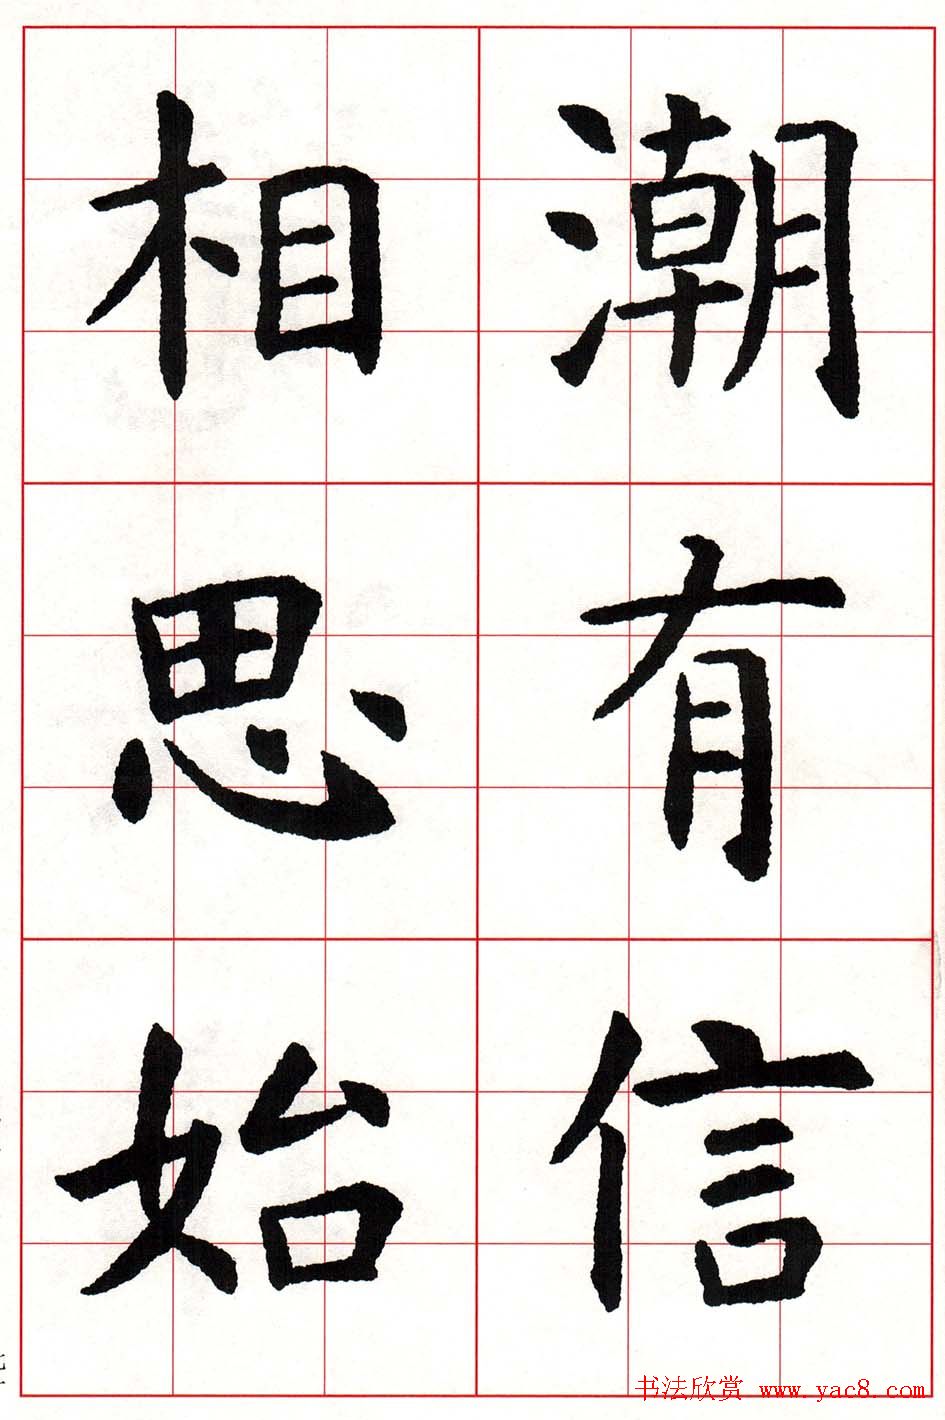 潮有信
相思始
书法欣赏 www.yac8.com